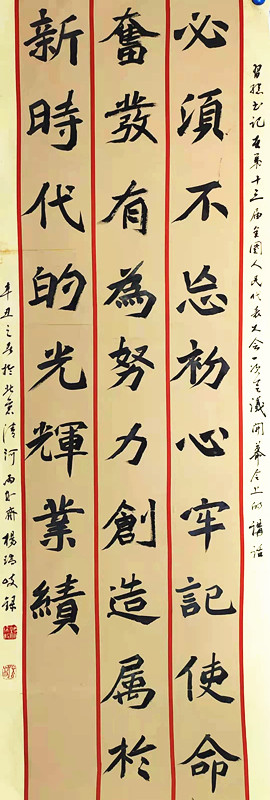 習總書記在第十三屆全國人民代表大會一次會議閉幕会上的講話
必須不忘初心牢記使命
奮發有為努力創造属於
新時代的光輝業績
辛丑之春於北京清河雨和齋楊瑞岐録